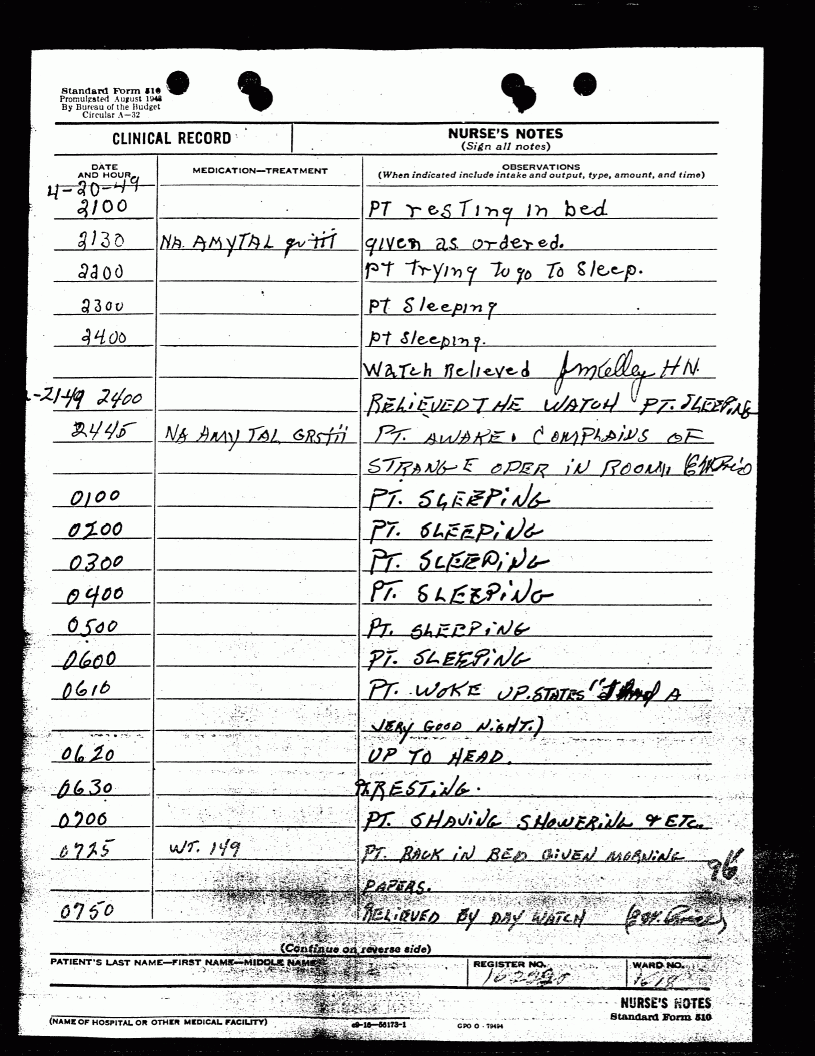 Standard Form 510
Promulgated August 1948
By Bureau of the Budget
Circular A—32
CLINICAL RECORD NURSE'S NOTES
(Sign all notes)
DATE AND HOUR MEDICATION—TREATMENT OBSERVATIONS
(When indicated include intake and output, type, amount, and time)
4-20-49
2100 PT resting in bed
2130 NA. AMYTAL given as ordered.
2200 pt trying to go to sleep.
2300 pt sleeping
2400 pt sleeping.
Watch Relieved HN.
-21-49 2400 RELIEVED THE WATCH PT. SLEEPING
2445 NA AMYTAL PT. AWAKE. COMPLAINS OF
STRANGE OPER IN ROOM.
0100 PT. SLEEPING
0200 PT. SLEEPING
0300 PT. SLEEPING
0400 PT. SLEEPING
0500 PT. SLEEPING
0600 PT. SLEEPING
0610 PT. WOKE UP. STATES "I had A
VERY GOOD NIGHT.)
0620 UP TO HEAD.
0630 RESTING.
0700 PT. SHAVING SHOWERING & ETC.
0725 WT. 149 PT. BACK IN BED GIVEN MORNING
PAPERS.
96
0750 RELIEVED BY DAY WATCH
(Continue on reverse side)
PATIENT'S LAST NAME—FIRST NAME—MIDDLE NAME REGISTER NO. WARD NO.
NURSE'S NOTES
Standard Form 510
(NAME OF HOSPITAL OR OTHER MEDICAL FACILITY) c9—16—56173-1 GPO O - 79494